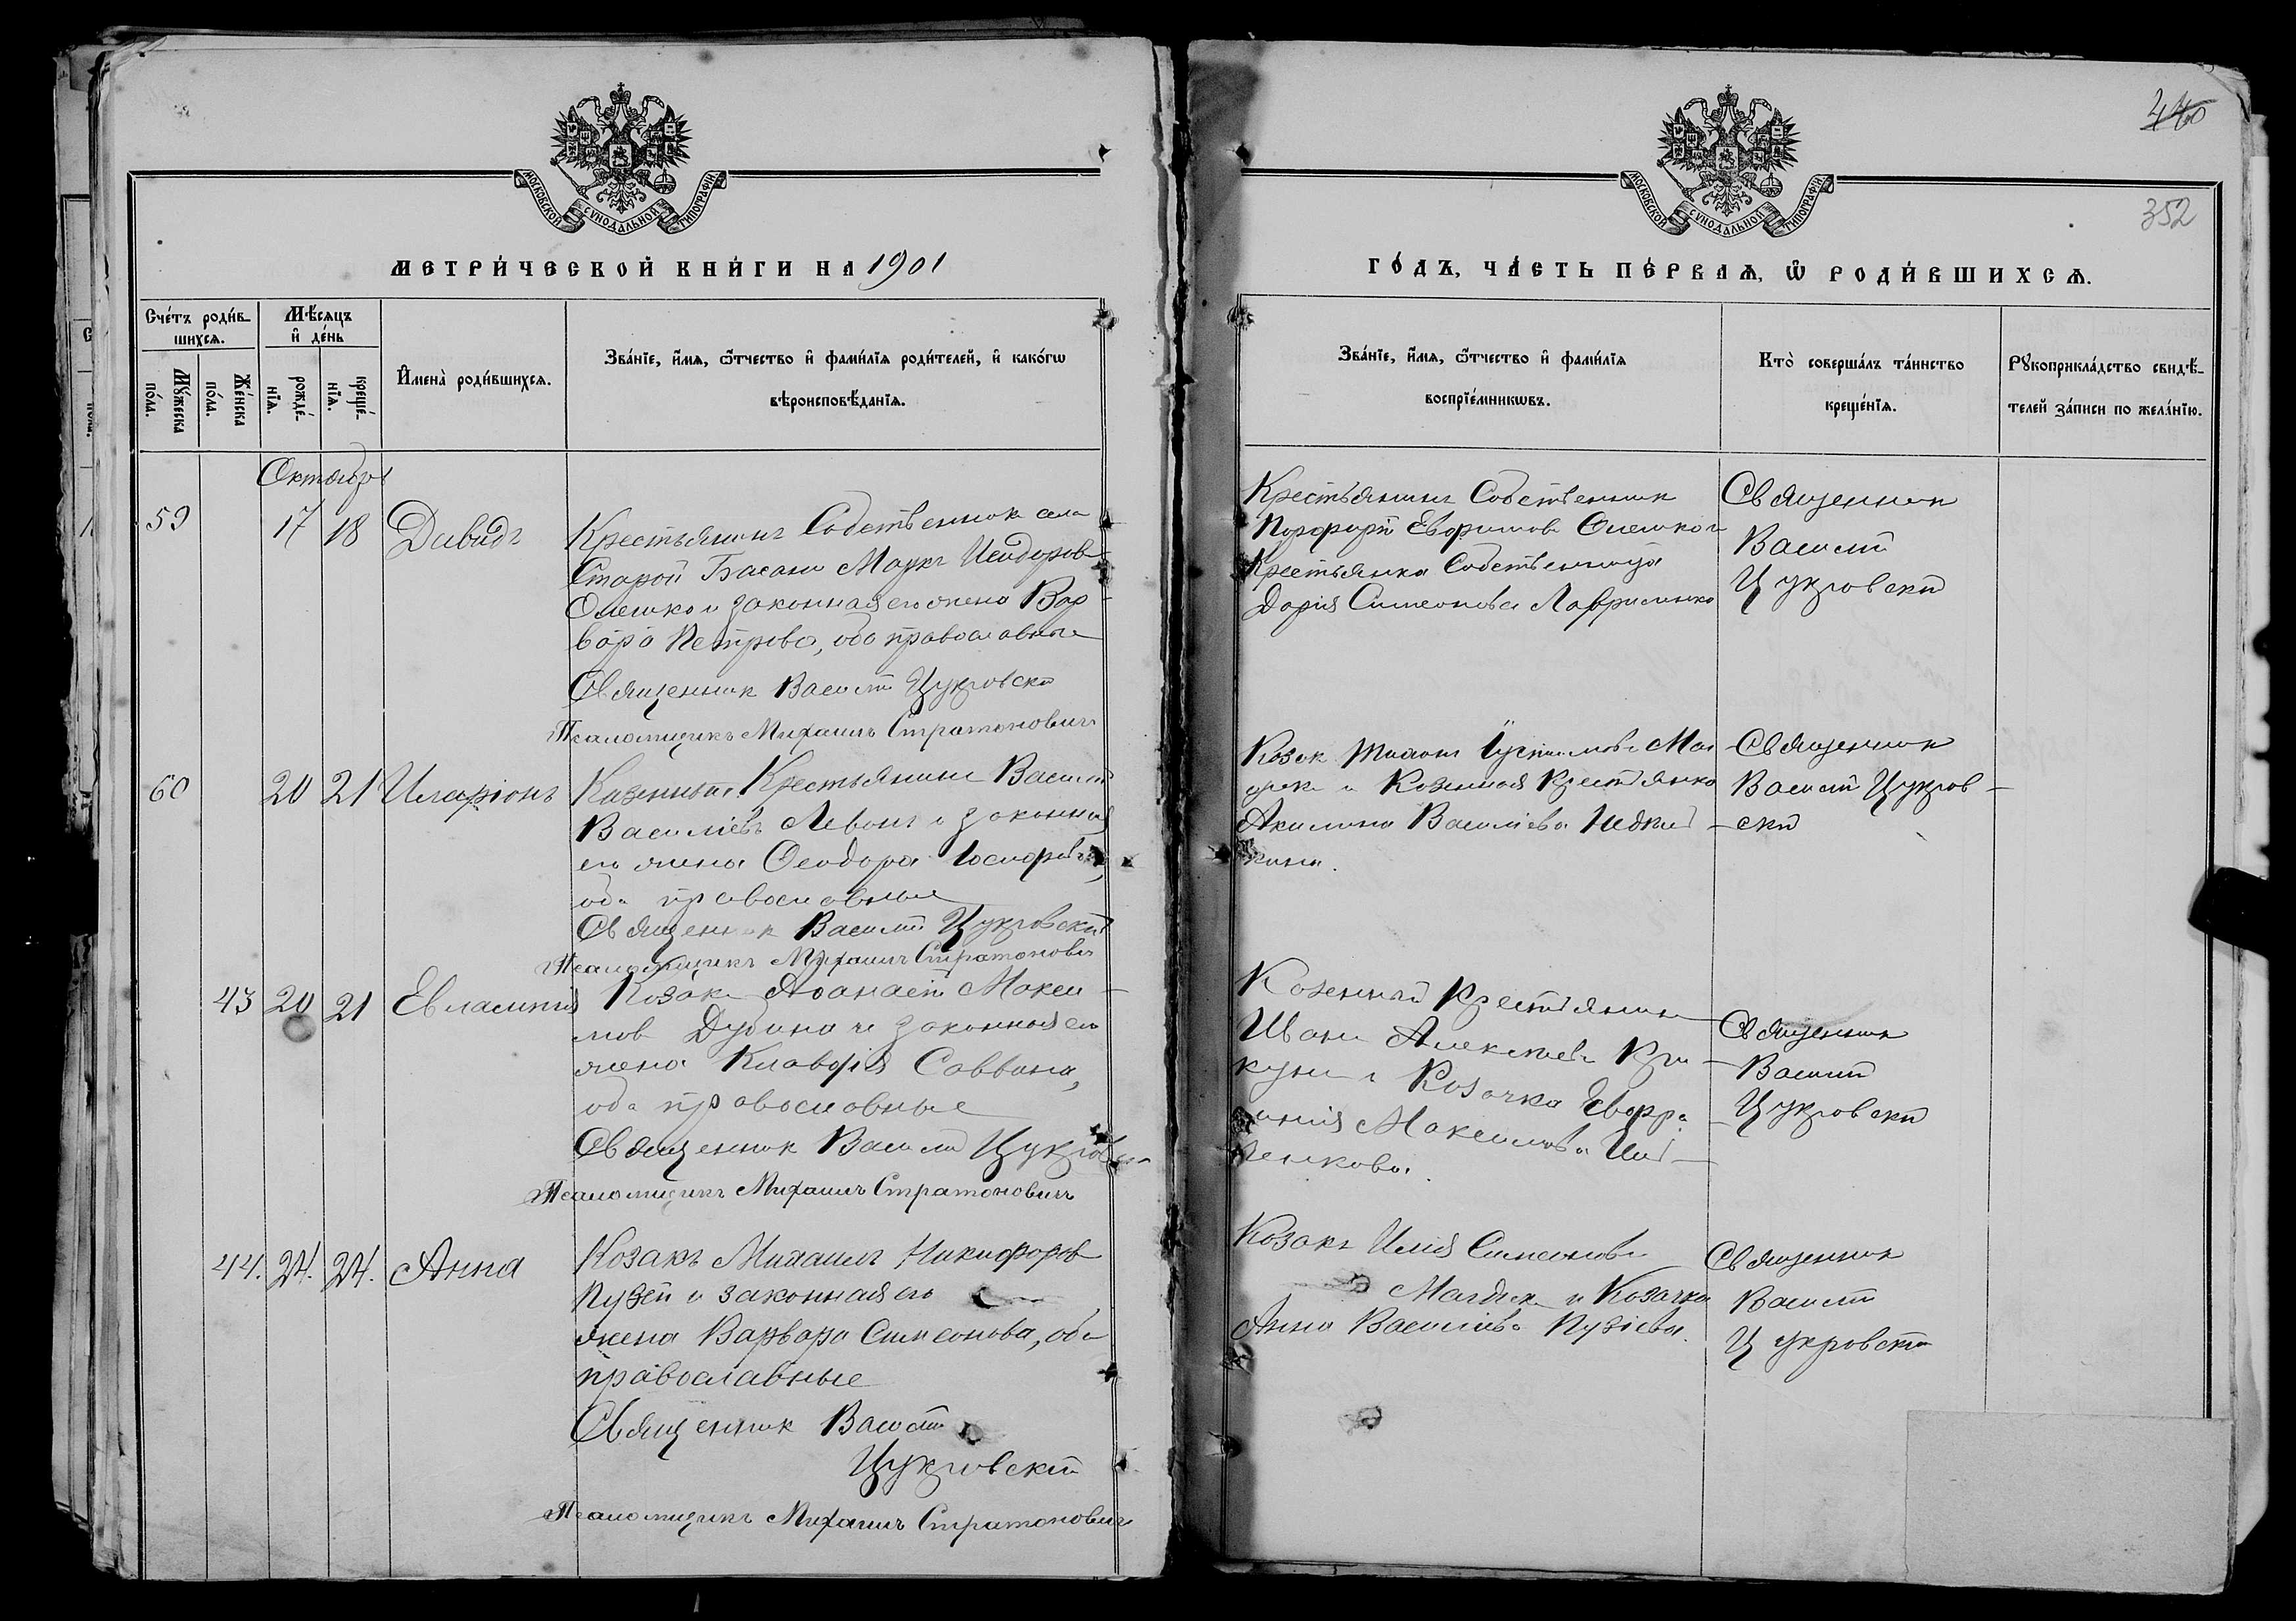 МОСКОВСКОЙ СѴНОДАЛЬНОЙ ТИПОГРАФІИ.
МЕТРИ́ЧЕСКОЙ КНИ́ГИ НА 1901
Сче́тъ роди́в-
шихсѧ.
Мѣ́сѧцъ
и҆ де́нь
Мꙋ́жеска
по́ла.
Же́нска
по́ла.
рожде́-
нїѧ.
креще́-
нїѧ.
И҆мена̀ роди́вшихсѧ.
Зва́нїе, и҆́мѧ, ѻ҆́тчество и҆ фами́лїѧ роди́телей, и҆ како́гѡ
вѣроисповѣ́данїѧ.
Октября
59 17 18 Давидъ
Крестьянинъ Собственник села
Старой Басани Маркъ Исидоров
Олешко и законная его жена Вар
вара Петрова, оба православные
Священник Василій Цукровскій
Псаломщикъ Михаилъ Стратоновичъ
60 20 21 Иларіонъ
Казенный Крестьянин Василій
Василіевъ Левонъ и законная
его жена Феодора Іосифова,
оба православные
Священник Василій Цукровскій
Псаломщикъ Михаилъ Стратонович
43 20 21 Евлампія
Козак Афанасій Макси
мов Дубина и законная его
жена Клавдія Саввина,
оба православные
Священник Василий Цукровск
Псаломщикъ Михаилъ Стратоновичъ
44. 24. 24. Анна
Козакъ Михаилъ Никифоров
Пузей и законная его
жена Варвара Симеонова, оба
православные
Священник Василій
Цукровскій
Псаломщикъ Михаилъ Стратоновичъ
440
352
МОСКОВСКОЙ СѴНОДАЛЬНОЙ ТИПОГРАФІИ.
ГО́ДЪ, ЧА́СТЬ ПЕ́РВАѦ, Ѽ РОДИ́ВШИХСѦ.
Зва́нїе, и҆́мѧ, ѻ҆́тчество и҆ фами́лїѧ
воспрїе́мникѡвъ.
Кто̀ соверша́лъ та́инство
креще́нїѧ.
Рꙋкоприкла́дство свидѣ́-
телей за́писи по жела́нїю.
Крестьянинъ Собственник
Порфирій Ефримов Олешко и
Крестьянка Собственница
Дарія Симеонова Лавриненко
Священник
Василій
Цукровскій
Козак
и Казенная Крестьянка
Акилина Василіева
Священник
Василій Цукров-
скій
Казенный Крестьянин
Иван Алексіев Кри-
кун и Козачка Евфро-
Максимова
Священник
Василій
Цукровскій
Козакъ Илія Симеонов
и Козачка
Анна Василіева Пузіева.
Священник
Василій
Цукровскій